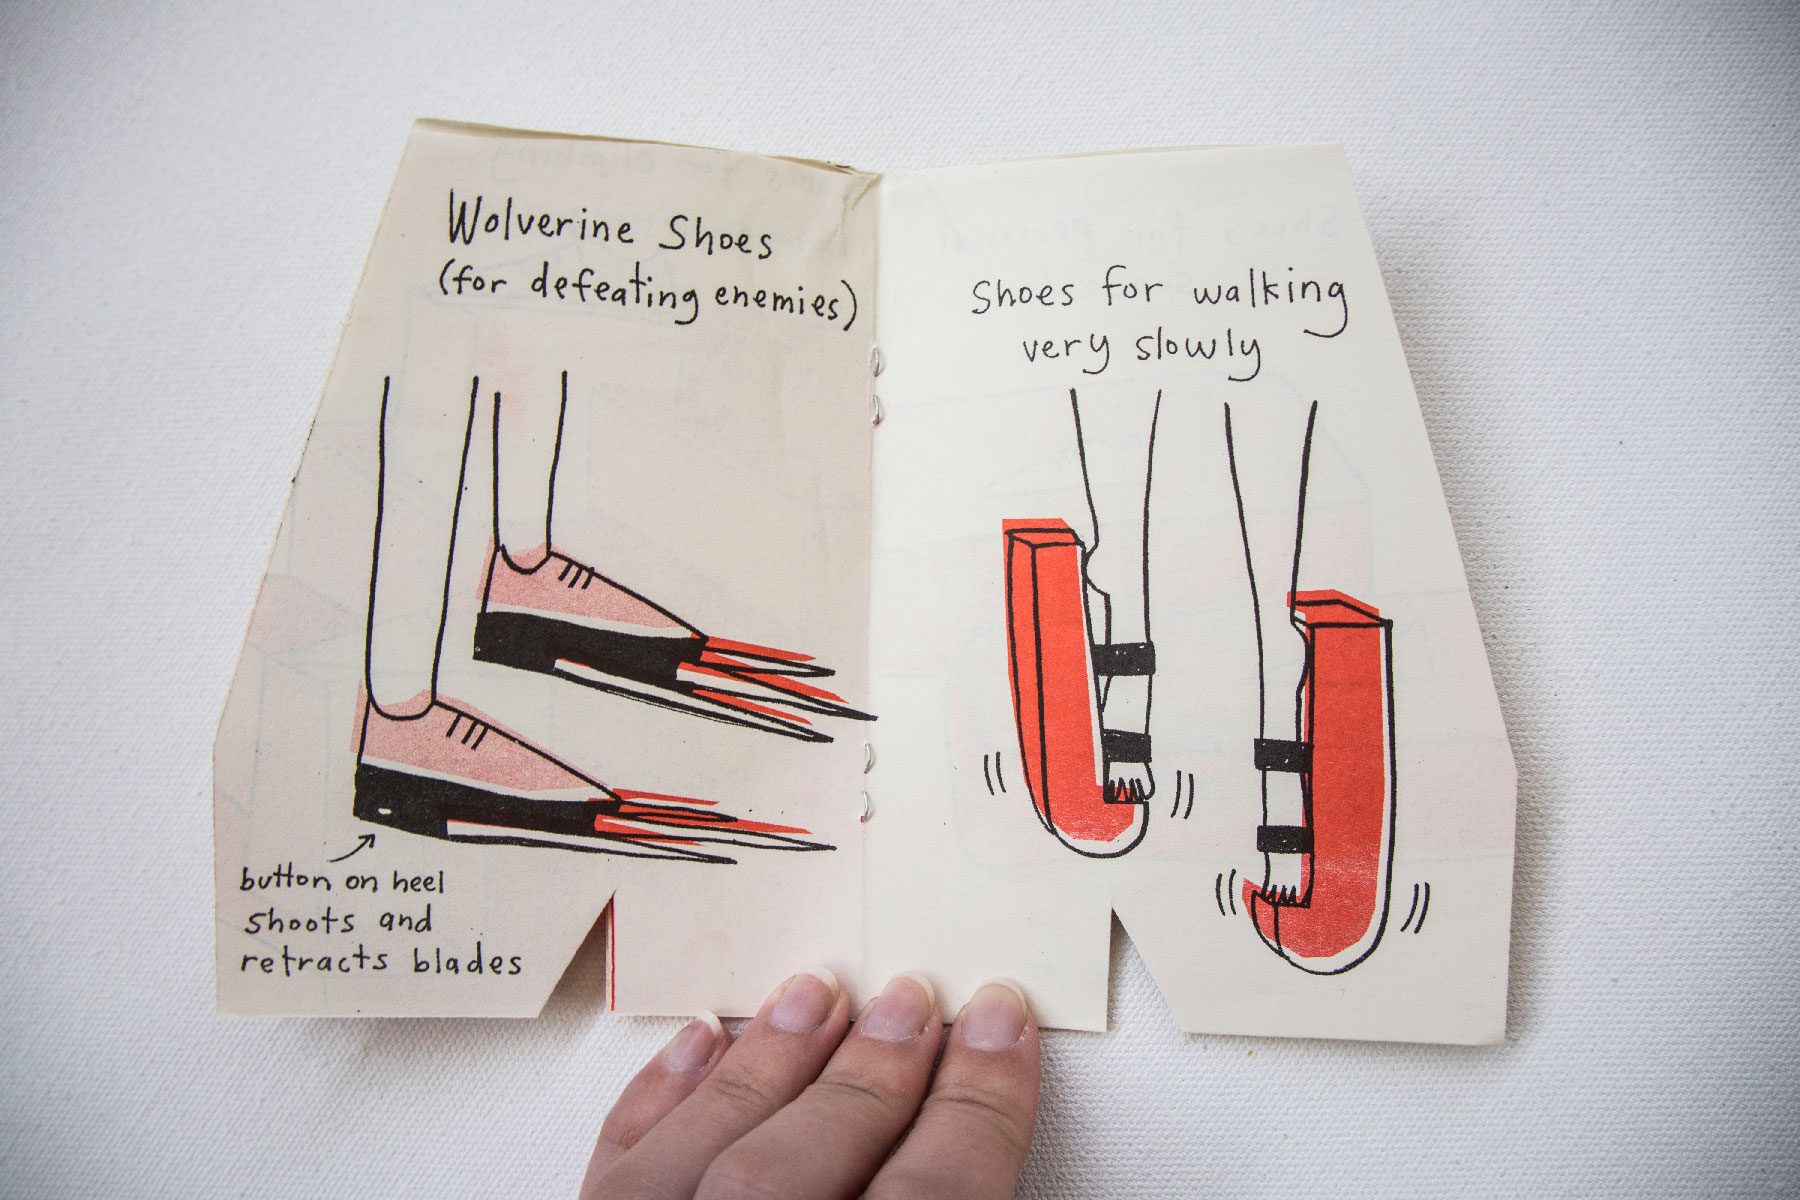 Wolverine Shoes
(for defeating enemies)
button on heel
shoots and
retracts blades
Shoes for walking
very slowly